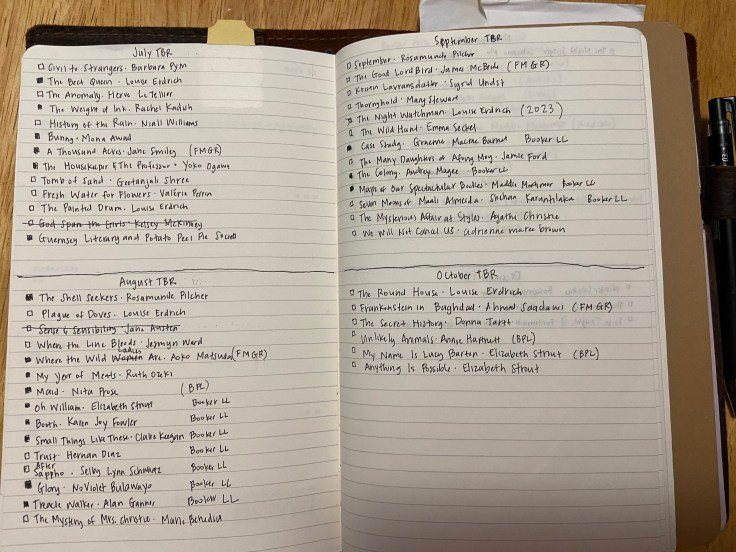 July TBR
Civil to Strangers · Barbara Pym
The Beet Queen · Louise Erdrich
The Anomaly · Herve Le Tellier
The Weight of Ink · Rachel Kadish
History of the Rain · Niall Williams
Bunny · Mona Awad
A Thousand Acres · Jane Smiley (FMGR)
The Housekeeper & The Professor · Yoko Ogawa
Tomb of Sand · Geetanjali Shree
Fresh Water for Flowers · Valérie Perrin
The Painted Drum · Louise Erdrich
God Spare the Girls · Kelsey McKinney
Guernsey Literary and Potato Peel Pie Society
August TBR
The Shell Seekers · Rosamunde Pilcher
Plague of Doves · Louise Erdrich
Sense & Sensibility Jane Austen
Where the Line Bleeds · Jesmyn Ward
Where the Wild Ladies Are · Aoko Matsuda (FMGR)
My Year of Meats · Ruth Ozeki
Maid · Nita Prose (BPL)
Oh William · Elizabeth Strout Booker LL
Booth · Karen Joy Fowler Booker LL
Small Things Like These · Claire Keegan Booker LL
Trust · Hernan Diaz Booker LL
After Sappho · Selby Lynn Schwartz Booker LL
Glory · NoViolet Bulawayo Booker LL
Treacle Walker · Alan Garner Booker LL
The Mystery of Mrs. Christie · Marie Benedict
September TBR
September · Rosamunde Pilcher
The Good Lord Bird · James McBride (FMGR)
Kristin Lavransdatter · Sigrid Undst
Thornyhold · Mary Stewart
The Night Watchman · Louise Erdrich (2023)
The Wild Hunt · Emma Seckel
Case Study · Graeme Macrae Burnet Booker LL
The Many Daughters of Afong Moy · Jamie Ford
The Colony · Audrey Magee · Booker LL
Maps of Our Spectacular Bodies · Maddie Mortimer Booker LL
Seven Moons of Maali Almeida · Shehan Karunatilaka Booker LL
The Mysterious Affair at Styles · Agatha Christie
We Will Not Cancel Us · adrienne maree brown
October TBR
The Round House · Louise Erdrich
Frankenstein in Baghdad · Ahmad Saadawi (FMGR)
The Secret History · Donna Tartt
Unlikely Animals · Annie Hartnett (BPL)
My Name Is Lucy Barton · Elizabeth Strout (BPL)
Anything Is Possible · Elizabeth Strout